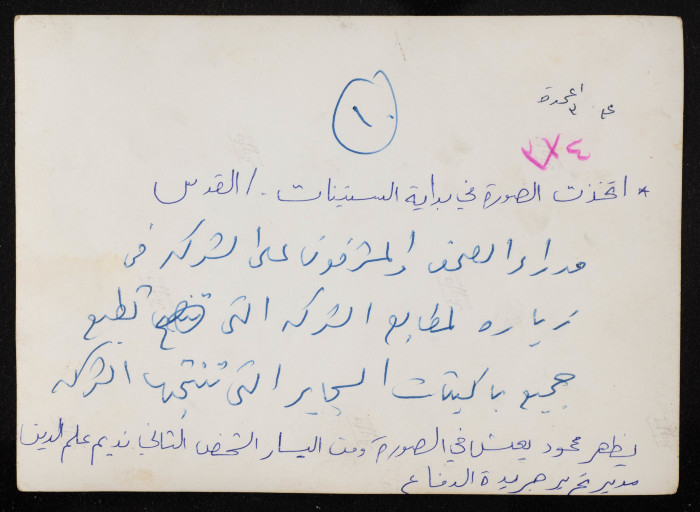 ١٠
٤ اعمدة
٣
٣X٤
* اتخذت الصورة في بداية الستينات . / القدس
مدراء الصحف والمشرفون على الشركه فى
زياره لمطابع الشركه التى تطبع
جميع باكيتات السجاير التى تنتجها الشركه
يظهر محمود يعيش في الصورة ومن اليسار الشخص الثاني نديم علم الدين
مدير تحرير جريدة الدفاع